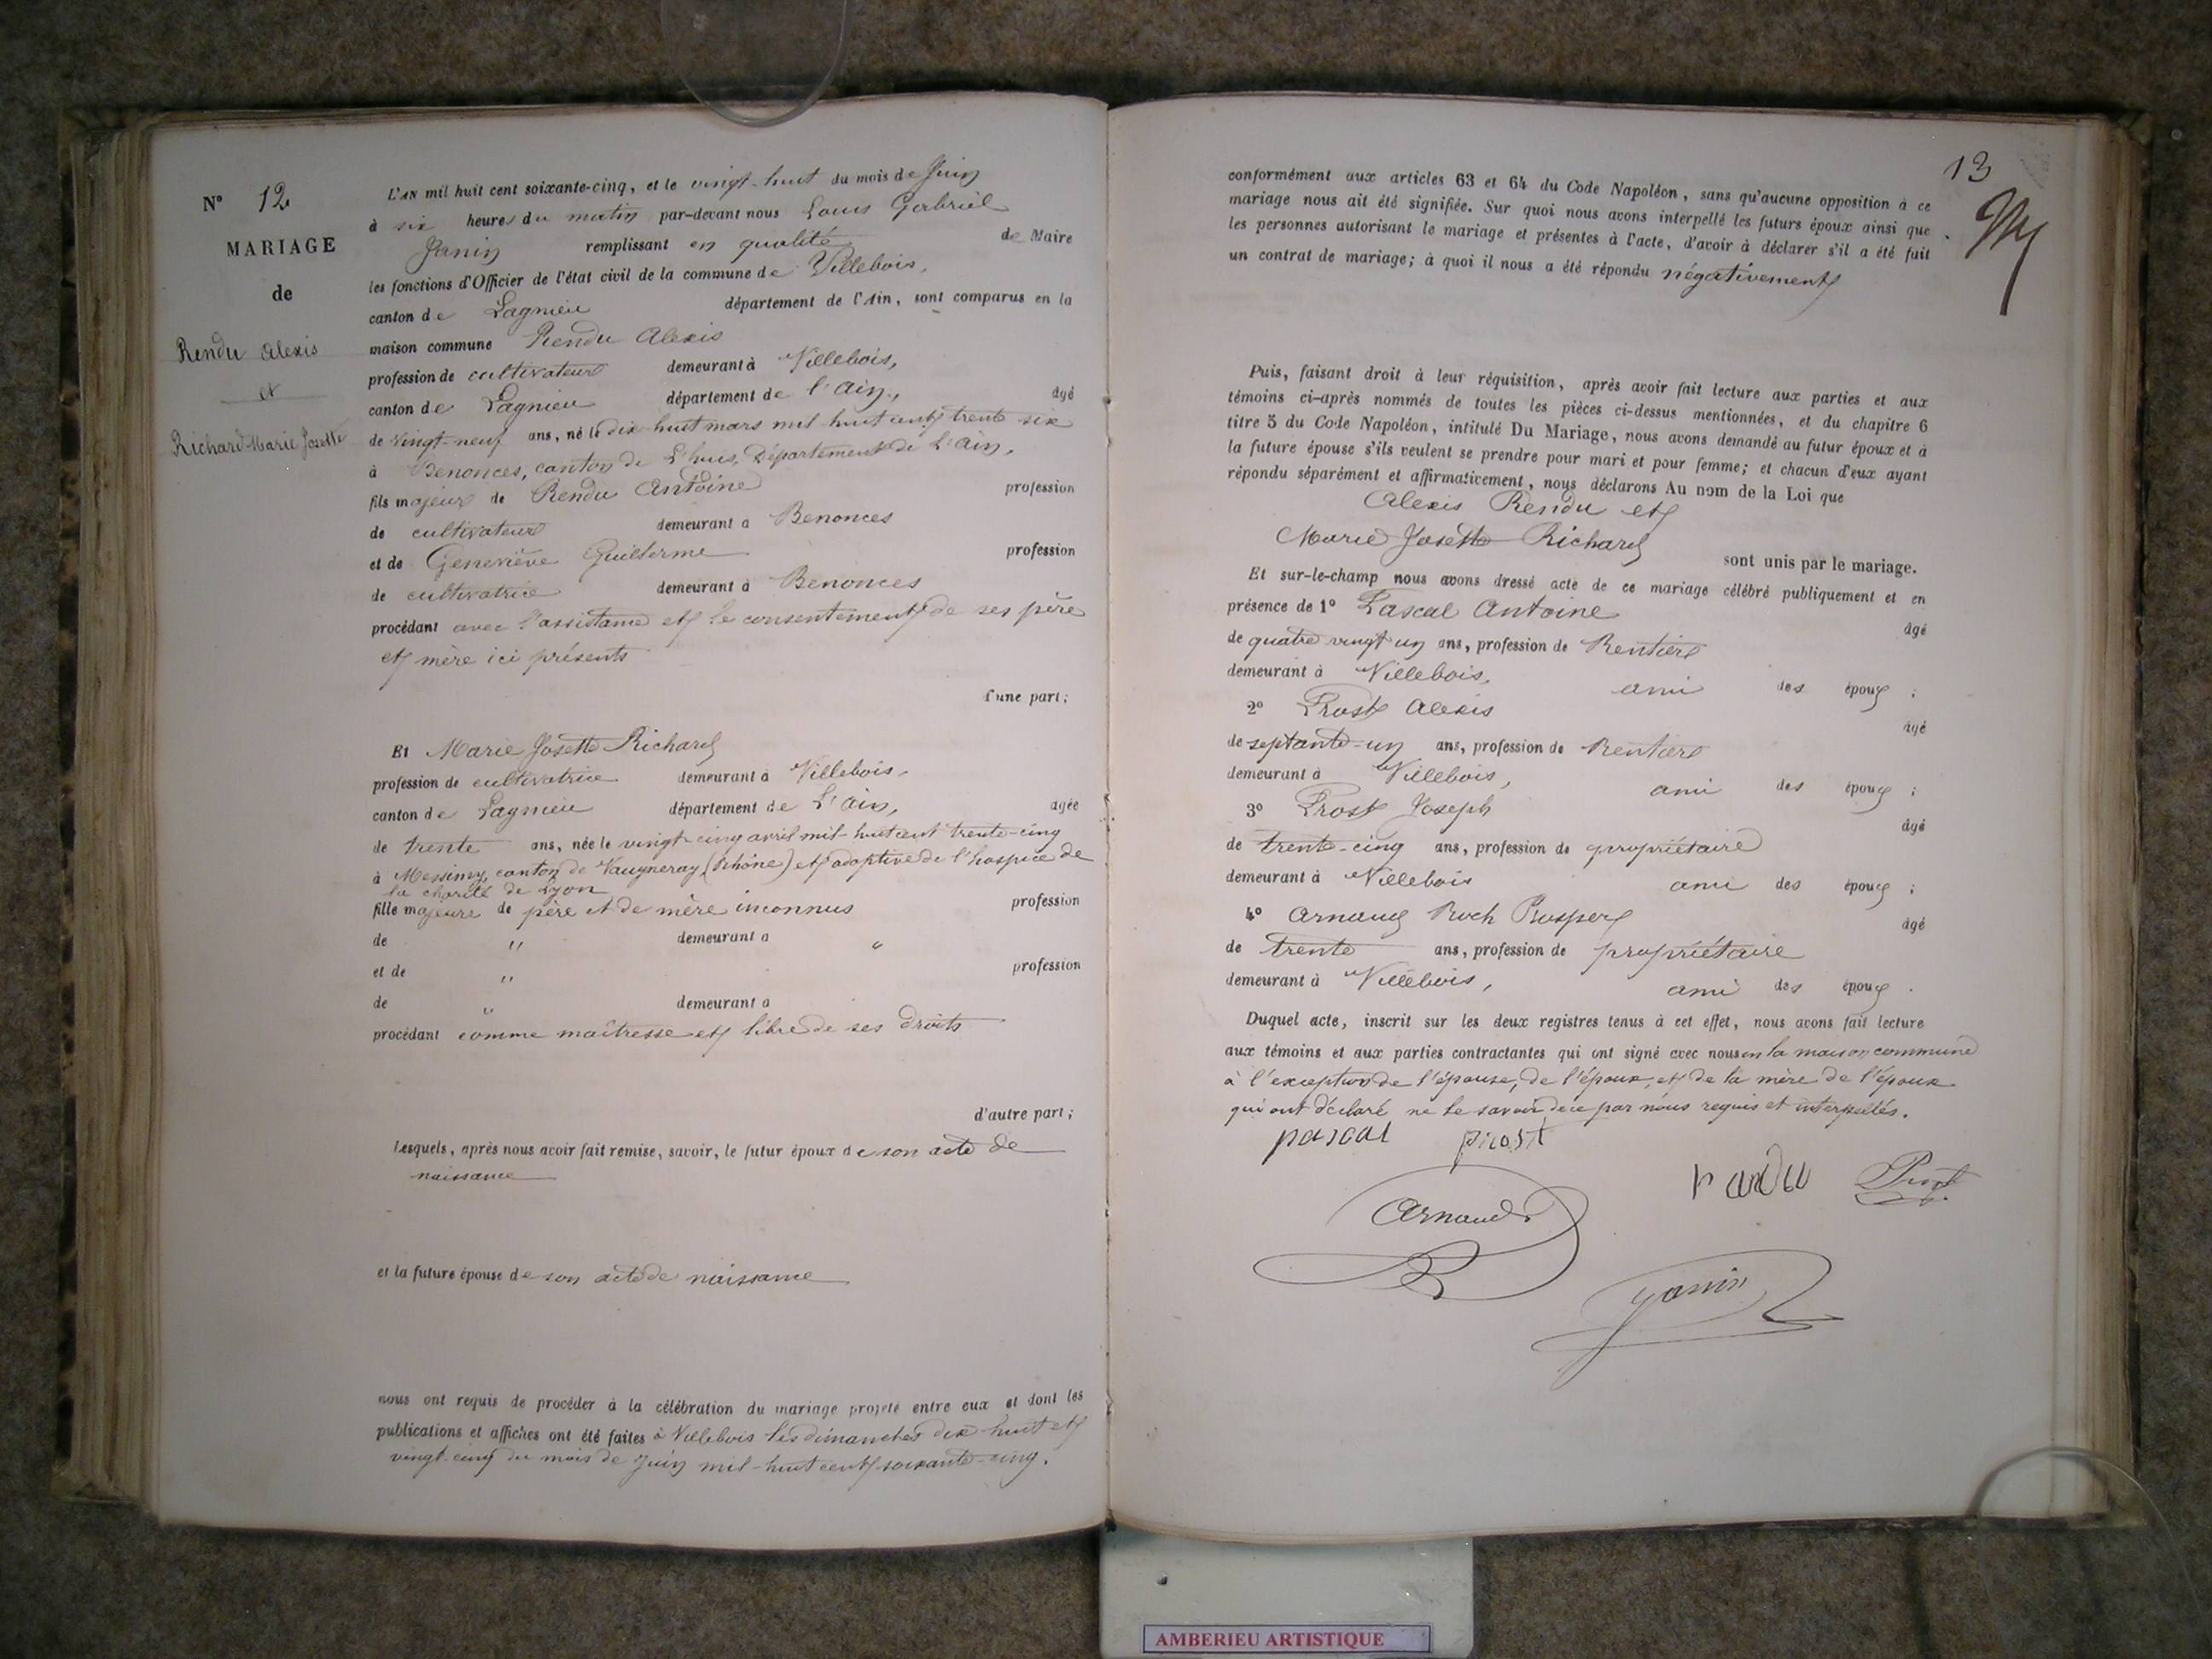 N° 12
MARIAGE
de
Rendu Alexis
et
Richard Marie Josette
L'AN mil huit cent soixante-cinq, et le vingt-huit du mois de Juin
à six heures du matin par-devant nous Louis Gabriel
Janin remplissant en qualité de Maire
les fonctions d'Officier de l'état civil de la commune de Villebois,
canton de Lagnieu département de l'Ain, sont comparus en la
maison commune Rendu Alexis
profession de cultivateur demeurant à Villebois,
canton de Lagnieu département de l'Ain, âgé
de vingt-neuf ans, né le dix-huit mars mil huit cent trente six
à Benonces, canton de Lhuis, Département de L'Ain,
fils majeur de Rendu Antoine profession
de cultivateur demeurant a Benonces
et de Geneviève Guillerme profession
de cultivatrice demeurant à Benonces
procédant avec l'assistance et le consentement de ses père
et mère ici présents
d'une part;
Et Marie Josette Richard
profession de cultivatrice demeurant à Villebois,
canton de Lagnieu département de L'Ain, agée
de trente ans, née le vingt-cinq avril mil-huit cent trente-cinq
à Messimy, canton de Vaugneray (Rhône) et adoptive de l'hospice de
la charité de Lyon
fille majeure de père et de mère inconnus profession
de " demeurant a "
et de " profession
de " demeurant a
procédant comme maîtresse et libre de ses droits
d'autre part;
Lesquels, après nous avoir fait remise, savoir, le futur époux de son acte de
naissance
et la future épouse de son acte de naissance
nous ont requis de procéder à la célébration du mariage projeté entre eux et dont les
publications et affiches ont été faites à Villebois les dimanches dix-huit et
vingt-cinq du mois de Juin mil-huit cent soixante-cinq.
13
conformément aux articles 63 et 64 du Code Napoléon, sans qu'aucune opposition à ce
mariage nous ait été signifiée. Sur quoi nous avons interpellé les futurs époux ainsi que
les personnes autorisant le mariage et présentes à l'acte, d'avoir à déclarer s'il a été fait
un contrat de mariage; à quoi il nous a été répondu négativement
Puis, faisant droit à leur réquisition, après avoir fait lecture aux parties et aux
témoins ci-après nommés de toutes les pièces ci-dessus mentionnées, et du chapitre 6
titre 5 du Code Napoléon, intitulé Du Mariage, nous avons demandé au futur époux et à
la future épouse s'ils veulent se prendre pour mari et pour femme; et chacun d'eux ayant
répondu séparément et affirmativement, nous déclarons Au nom de la Loi que
Alexis Rendu et
Marie Josette Richard
sont unis par le mariage.
Et sur-le-champ nous avons dressé acte de ce mariage célébré publiquement et en
présence de 1° Pascal Antoine âgé
de quatre vingt un ans, profession de Rentier
demeurant à Villebois, ami des époux ;
2° Prost Alexis âgé
de septante-un ans, profession de Rentier
demeurant à Villebois, ami des époux ;
3° Prost Joseph âgé
de trente-cinq ans, profession de propriétaire
demeurant à Villebois ami des époux ;
4° Arnaud Roch Prosper âgé
de trente ans, profession de propriétaire
demeurant à Villebois, ami des époux .
Duquel acte, inscrit sur les deux registres tenus à cet effet, nous avons fait lecture
aux témoins et aux parties contractantes qui ont signé avec nous en la maison commune
à l'exception de l'épouse, de l'époux, et de la mère de l'époux
qui ont déclaré ne le savoir de ce par nous requis et interpellés.
pascal prost
randu Prost
Arnaud
Janin
AMBERIEU ARTISTIQUE